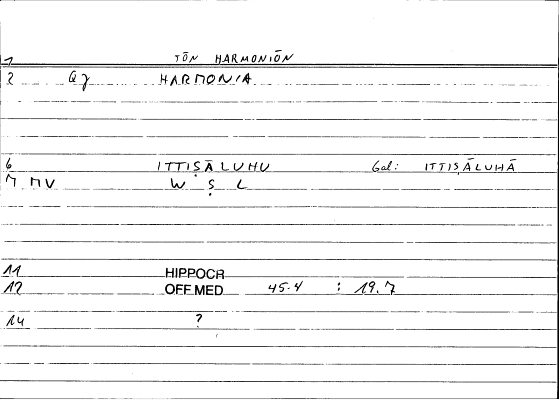 1 TŌN HARMONIŌN
2 Q7 HARMONIA
6 ITTIṢĀLUHU Gal: ITTIṢĀLUHĀ
M MV W Ṣ L
11 HIPPOCR
12 OFF.MED 45.4 : 19.7
14 ?